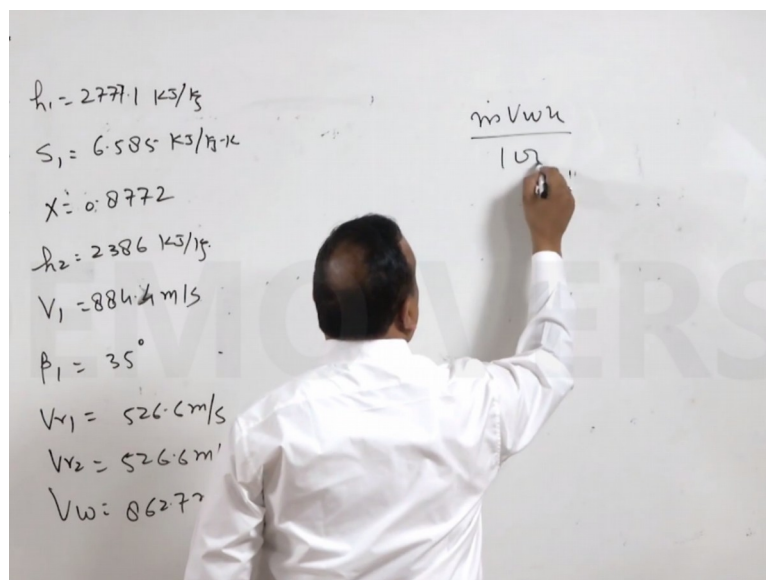 h₁ = 2777.1 KJ/kg
S₁ = 6.585 KJ/kg-K
X = 0.8772
h₂ = 2386 KJ/kg
V₁ = 884.4 m/s
β₁ = 35°
Vr₁ = 526.6 m/s
Vr₂ = 526.6 m
Vw = 862.7
ṁ Vw u
10